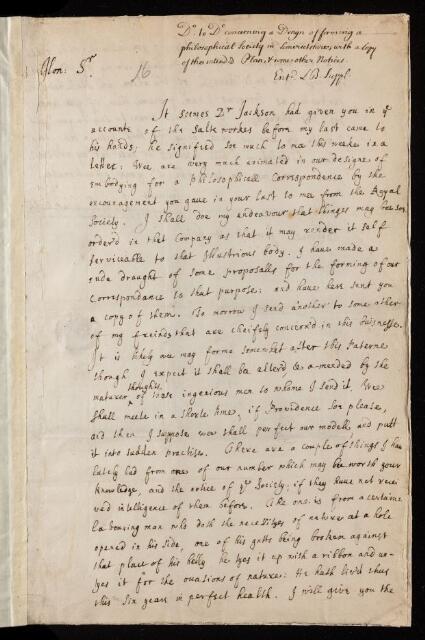 Do. to Do. concerning a Design of forming a
philosophical Society in Lincolnshire, with a Copy
of the intended Plan, & some other Notices.
Entd. LB. Suppl.
Hon: Sr.
16
It seemes Dr Jackson had given you in ye
accounte of the Salte workes before my last came to
his hands; he signified soe much to mee this weeke in a
letter: Wee are very much animated in our designe of
embodying for a philosophicall Correspondence by the
encouragement you gave in your last to mee from the Royal
Society. I shall doe my endeavour that things may bee soe
orderd in that Company as that it may render it self
serviceable to that Illustrious body. I have made a
rude draught of some proposalls for the forming of our
Correspondance to that purpose: and have here sent you
a copy of them. To morrow I send another to some other
of my freinds that are cheifely concern'd in this businesse.
It is likely wee may forme somewhat after this Paterne
though I expect it shall be alterd & a-mended by the
maturer thoughts of those ingenious men to whome I send it. Wee
shall meete in a shorte time, if Providence soe please,
and then I suppose wee shall perfect our modell and putt
it into sudden practise. There are a couple of things I have
lately had from one of our number which may be worth your
knowledge, and the notice of ye Society; if they have not recei
ved intelligence of them before. The one is from a certaine
Labouring man who doth the necessityes of nature at a hole
opened in his side, one of his gutts being broken against
that place of his belly he tyes it up with a ribbon and un-
tyes it for the occasions of nature: He hath liv'd thus
this six years in perfect health. I will give you the